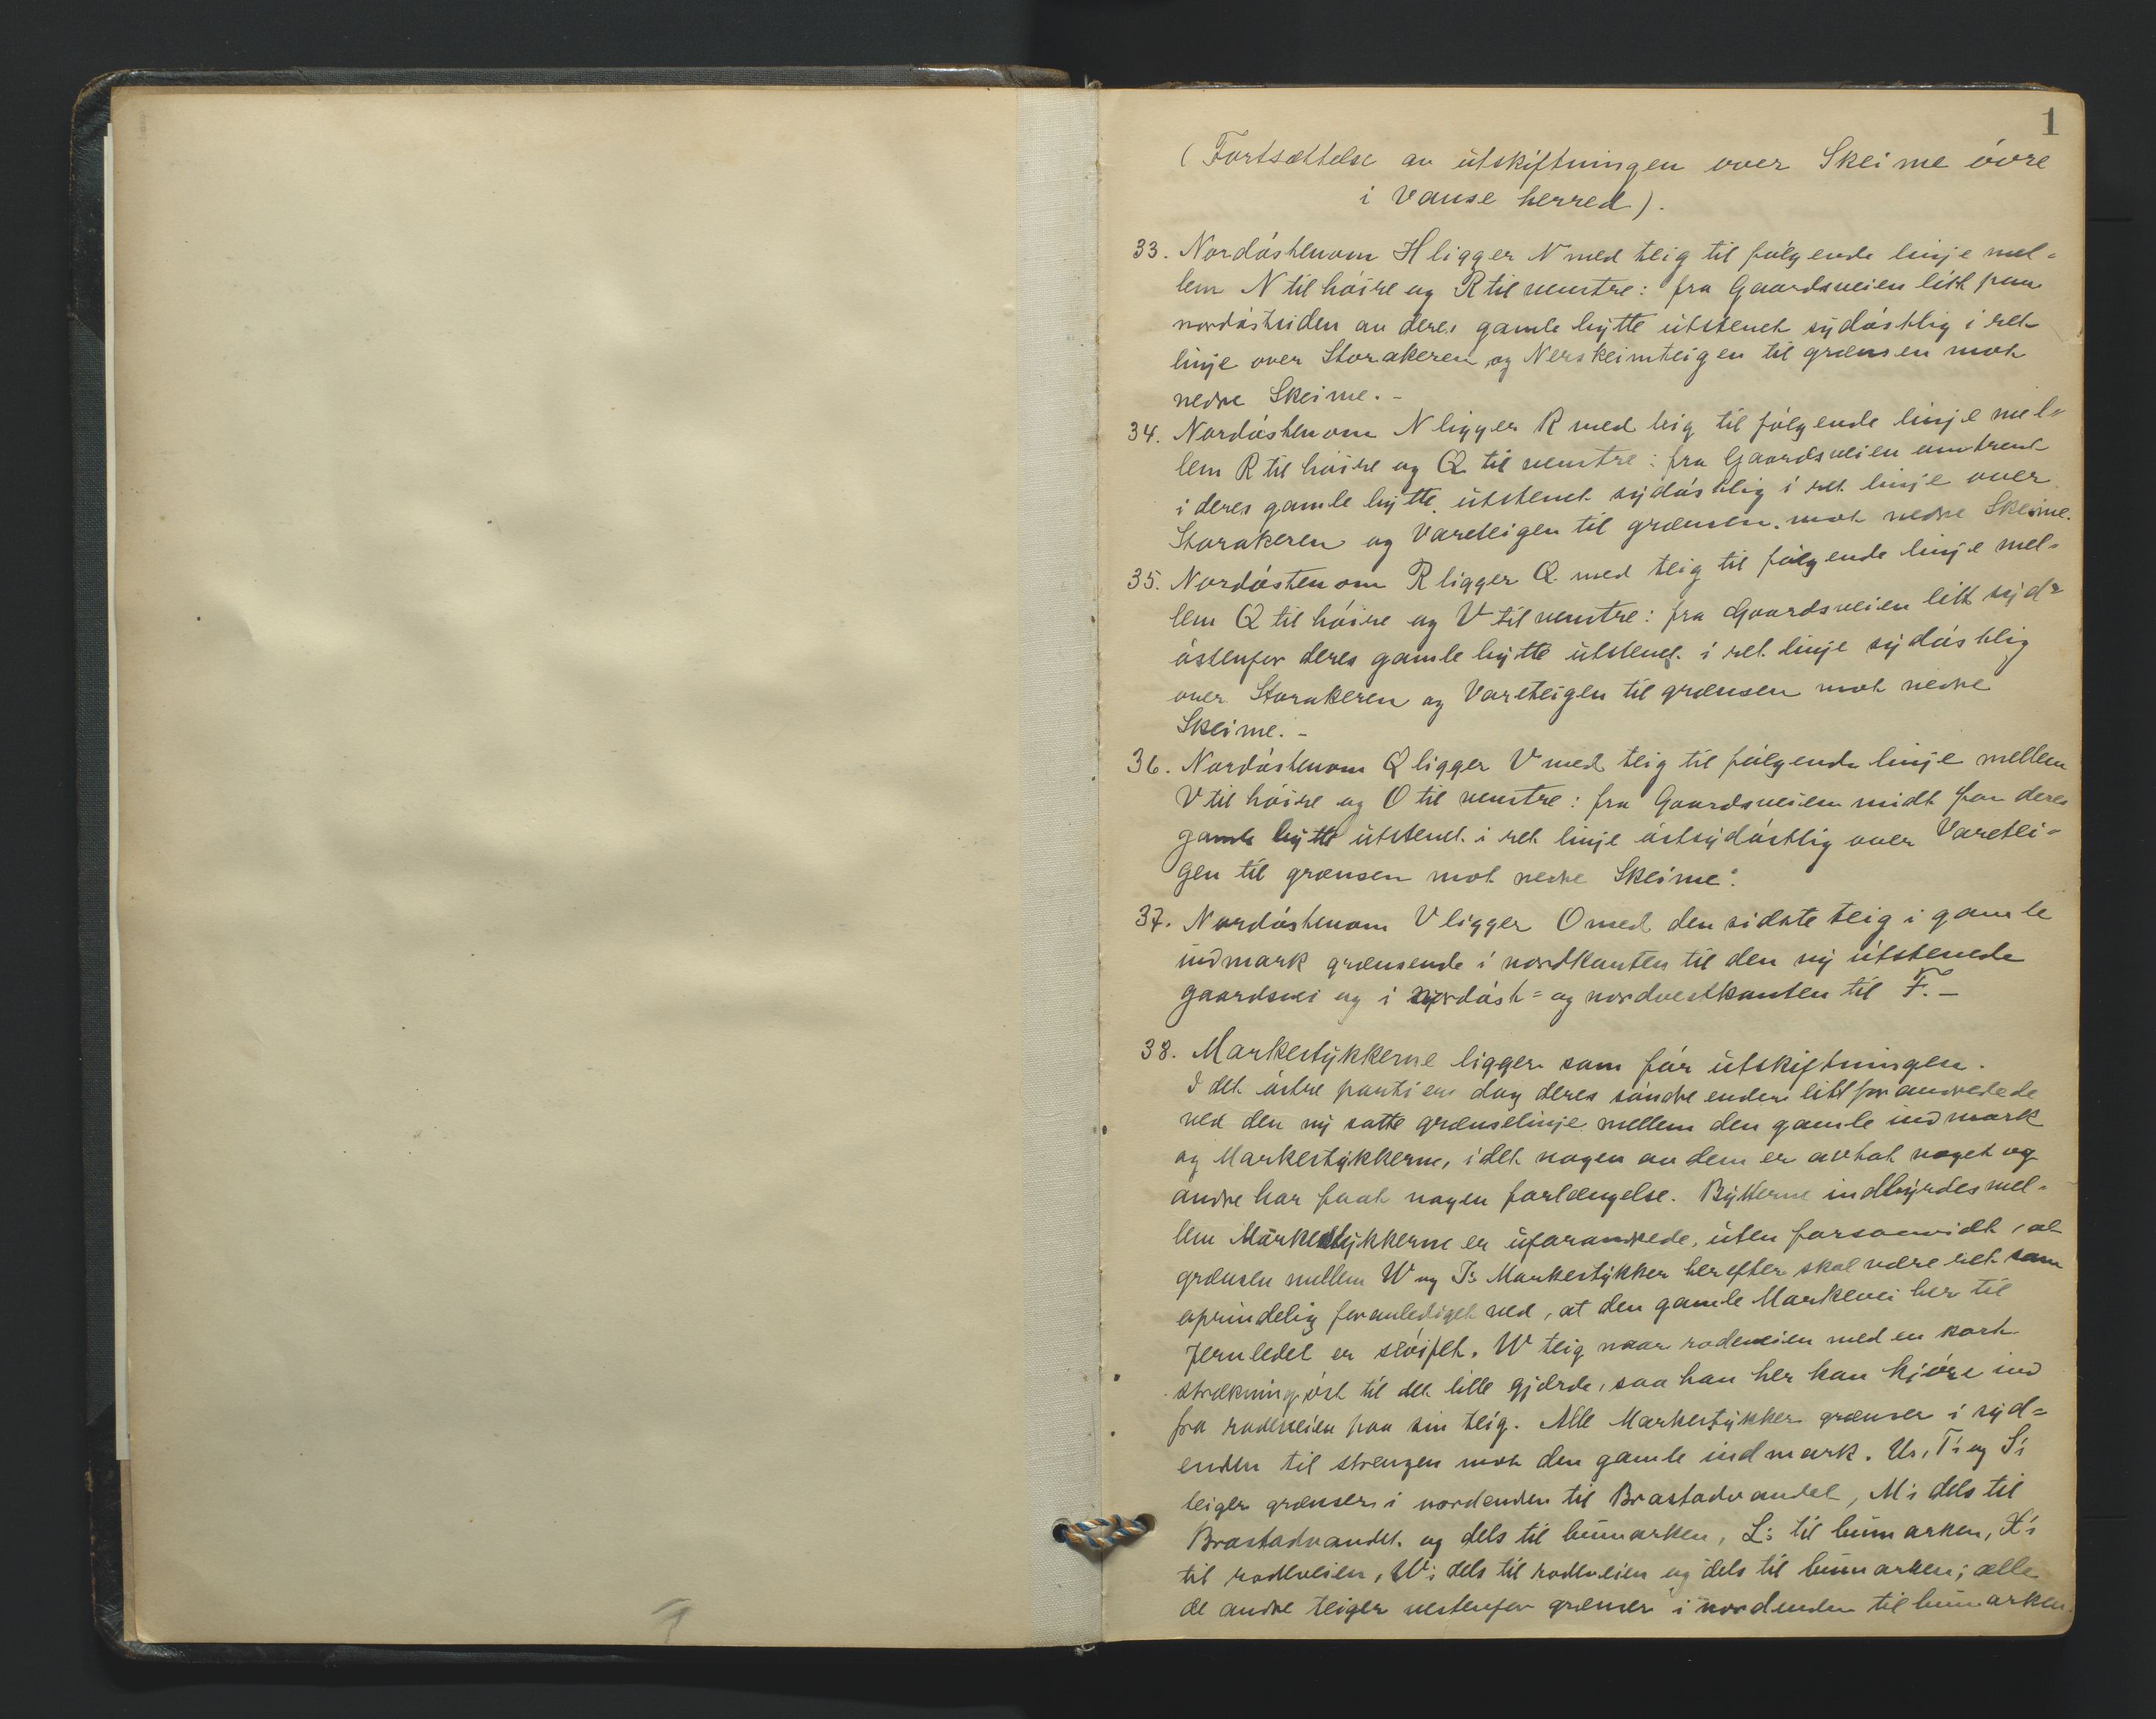 1
(Fortsættelse av utskiftningen over Skeime övre
i Vanse herred).
33. Nordöstenom H ligger N med teig til fölgende linje mel=
lem N til höire og R til venstre: fra Gaardsveien litt paa
nordöstsiden av deres gamle bytte utstenet sydöstlig i ret
linje over Storakeren og Nerskeimteigen til grænsen mot
nedre Skeime. -
34. Nordöstenom N ligger R med teig til fölgende linje mel=
lem R til höire og Q til venstre: fra Gaardsveien omtrent
i deres gamle bytte utstenet sydöstlig i ret linje over
Storakeren og Vareteigen til grænsen mot nedre Skeime.
35. Nordöstenom R ligger Q med teig til fölgende linje mel=
lem Q til höire og V til venstre: fra Gaardsveien litt syd=
östenfor deres gamle bytte utstenet i ret linje sydöstlig
over Storakeren og Vareteigen til grænsen mot nedre
Skeime. -
36. Nordöstenom Q ligger V med teig til fölgende linje mellem
V til höire og O til venstre: fra Gaardsveien midt paa deres
gamle bytte utstenet i ret linje östsydöstlig over Varetei=
gen til grænsen mot nedre Skeime.
37. Nordöstenom V ligger O med den sidste teig i gamle
indmark grænsende i nordkanten til den ny utstenede
gaardsvei og i nordöst= og nordvestkanten til F. -
38. Markestykkerne ligger som för utskiftningen.
I det östre parti er dog deres söndre ender litt forandrede
ved den ny satte grænselinje mellem den gamle indmark
og Markestykkerne, idet nogen av dem er avtat noget og
andre har faat nogen forlængelse. Bytterne indbyrdes mel=
lem Markestykkerne er uforandrede, uten forsaavidt, at
grænsen mellem W og I's Markestykker herefter skal være ret som
oprindelig foranlediget ved, at den gamle Markevei her til
Jernledet er slöifet. W teig naar rodeveien med en kort
strækning öst til det lille gjærde, saa han her kan kjöre ind
fra rodeveien paa sin teig. Alle Markestykker grænser i syd=
enden til strengen mot den gamle indmark. Us, T's og S's
teiger grænser i nordenden til Brastadvandet, M's dels til
Brastadvandet og dels til bumarken, L's til bumarken, X's
til rodeveien, W's dels til rodeveien og dels til bumarken; alle
de andre teiger vestenfor grænser i nordenden til bumarken.